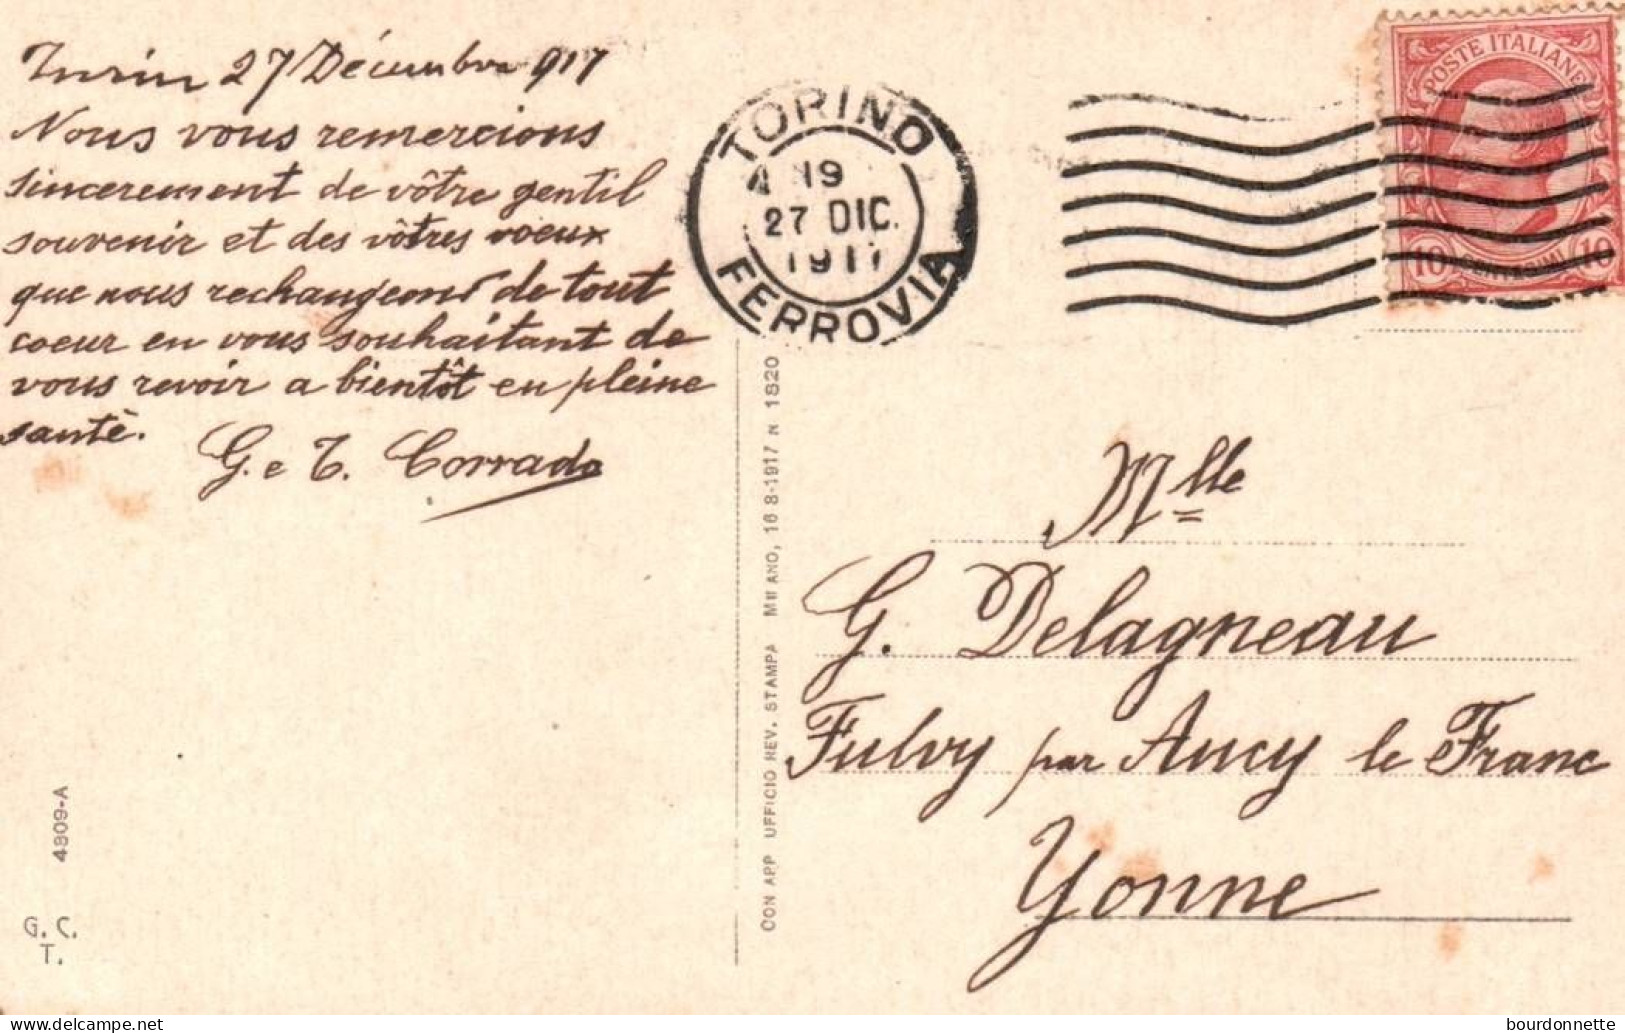 Turin 27 Décembre 917
Nous vous remercions
sincerement de vôtre gentil
souvenir et des vôtres voeux
que nous rechangeons de tout
coeur en vous souhaitant de
vous revoir a bientôt en pleine
santè.
G. e T. Corrado
TORINO
19
27 DIC.
1917
FERROVIA
POSTE ITALIANE
10 CENTESIMI 10
CON APP UFFICIO REV. STAMPA MILANO, 16 8-1917 N 1820
Mlle
G. Delagneau
Fulvy par Ancy le Franc
Yonne
4809-A
G. C.
T.
bourdonnette